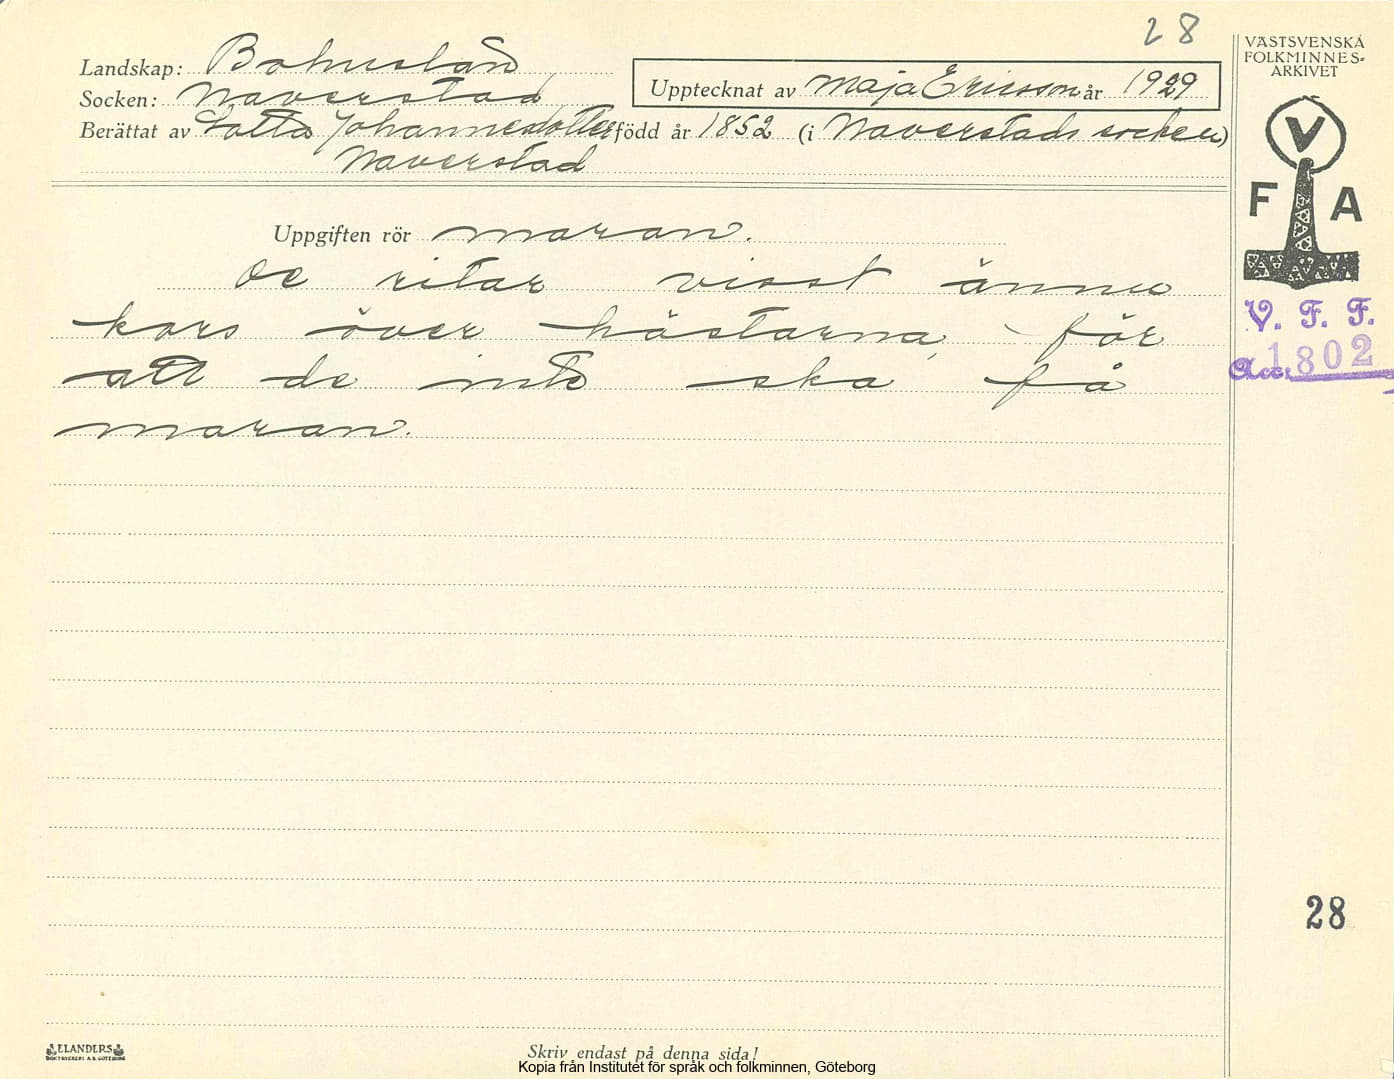 28
Landskap: Bohuslän
Socken: Naverstad
Upptecknat av Maja Ericsson år 1929
Berättat av Lotta Johannesdotter född år 1852 (i Naverstads socken)
Naverstad
VÄSTSVENSKA
FOLKMINNES-
ARKIVET
V
F A
V. F. F.
Acc. 1802
Uppgiften rör maran.
De ritar visst ännu
kors över hästarna, för
att de inte ska få
maran.
28
ELANDERS
BOKTRYCKERI A.B. GÖTEBORG
Skriv endast på denna sida!
Kopia från Institutet för språk och folkminnen, Göteborg